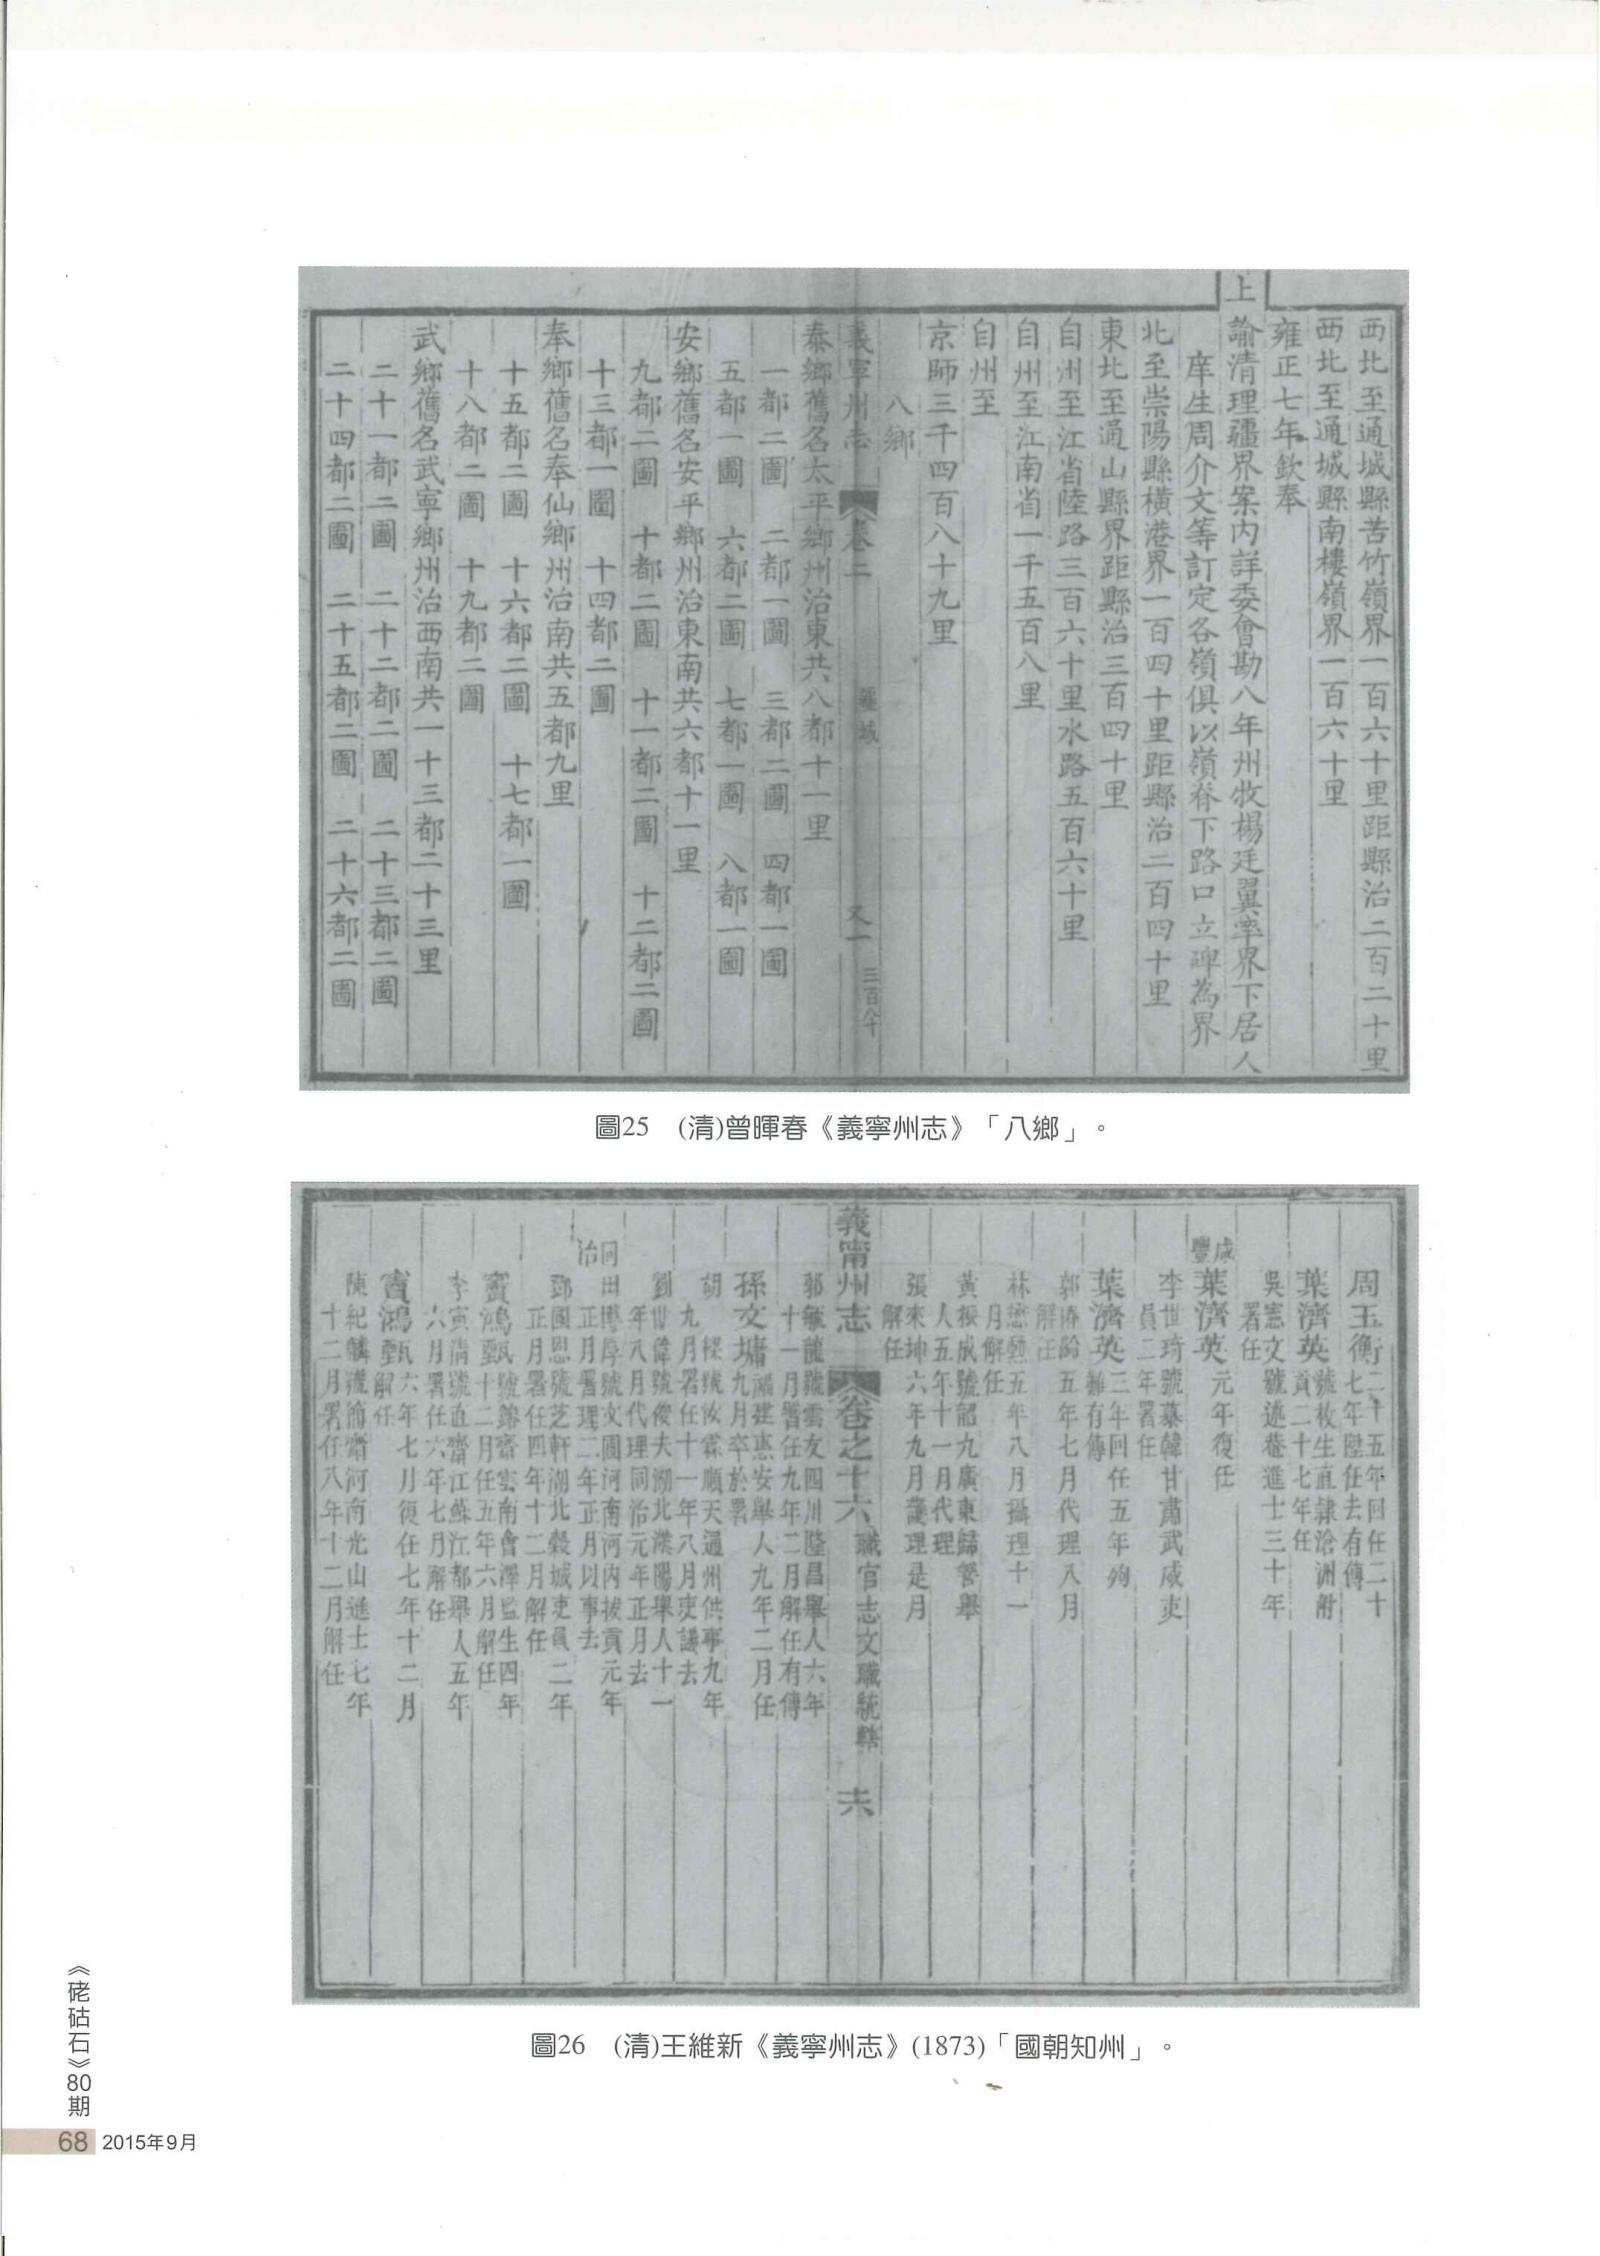 西北至通城縣苦竹嶺界一百六十里距縣治二百二十里
西北至通城縣南樓嶺界一百六十里
雍正七年欽奉
上
諭清理疆界案內詳委會勘八年州牧楊廷翼率界下居人
庠生周介文等訂定各嶺俱以嶺脊下路口立碑為界
北至崇陽縣橫港界一百四十里距縣治二百四十里
東北至通山縣界距縣治三百四十里
自州至江省陸路三百六十里水路五百六十里
自州至江南省一千五百八里
自州至
京師三千四百八十九里
八鄉
義寧州志 卷二 疆域 又一 三百八十
泰鄉舊名太平鄉州治東共八都十一里
一都二圖 二都一圖 三都二圖 四都一圖
五都一圖 六都二圖 七都一圖 八都一圖
安鄉舊名安平鄉州治東南共六都十一里
九都二圖 十都二圖 十一都二圖 十二都二圖
十三都一圖 十四都二圖
奉鄉舊名奉仙鄉州治南共五都九里
十五都二圖 十六都二圖 十七都一圖
十八都二圖 十九都二圖
武鄉舊名武寧鄉州治西南共一十三都二十三里
二十一都二圖 二十二都二圖 二十三都二圖
二十四都二圖 二十五都二圖 二十六都二圖
圖25 (清)曾暉春《義寧州志》「八鄉」。
周玉衡二十五年回任二十
七年陞任去有傳
葉濟英號枚生直隸滄洲附
貢二十七年任
吳憲文號述菴進士三十年
署任
咸豐
葉濟英元年復任
李世琦號慕韓甘肅武威吏
員二年署任
葉濟英三年回任五年殉
難有傳
郭 五年七月代理八月
解任
林懋勲五年八月攝理十一
月解任
黃振成號韶九廣東歸善舉
人五年十一月代理
張來坤六年九月護理是月
解任
義甯州志 卷之十六 職官志文職統轄 十六
郭毓龍號雲友四川隆昌舉人六年
十一月署任九年二月解任有傳
孫文墉福建惠安舉人九年二月任
九月卒於署
胡 號汝霖順天通州供事九年
九月署任十一年八月吏議去
劉世偉號俊夫湖北漢陽舉人十一
年八月代理同治元年正月去
同治
田厚號文圃河南河內拔貢元年
正月署理二年正月以事去
鄧國恩號芝軒湖北穀城吏員二年
正月署任四年十二月解任
竇鴻甄號 齋雲南會澤監生四年
十二月任五年六月解任
李寅清號直齋江蘇江都舉人五年
六月署任六年七月解任
竇鴻甄六年七月復任七年十二月
解任
陳紀麟號簡齋河南光山進士七年
十二月署任八年十二月解任
圖26 (清)王維新《義寧州志》(1873)「國朝知州」。
《硓𥑮石》80期
68 2015年9月